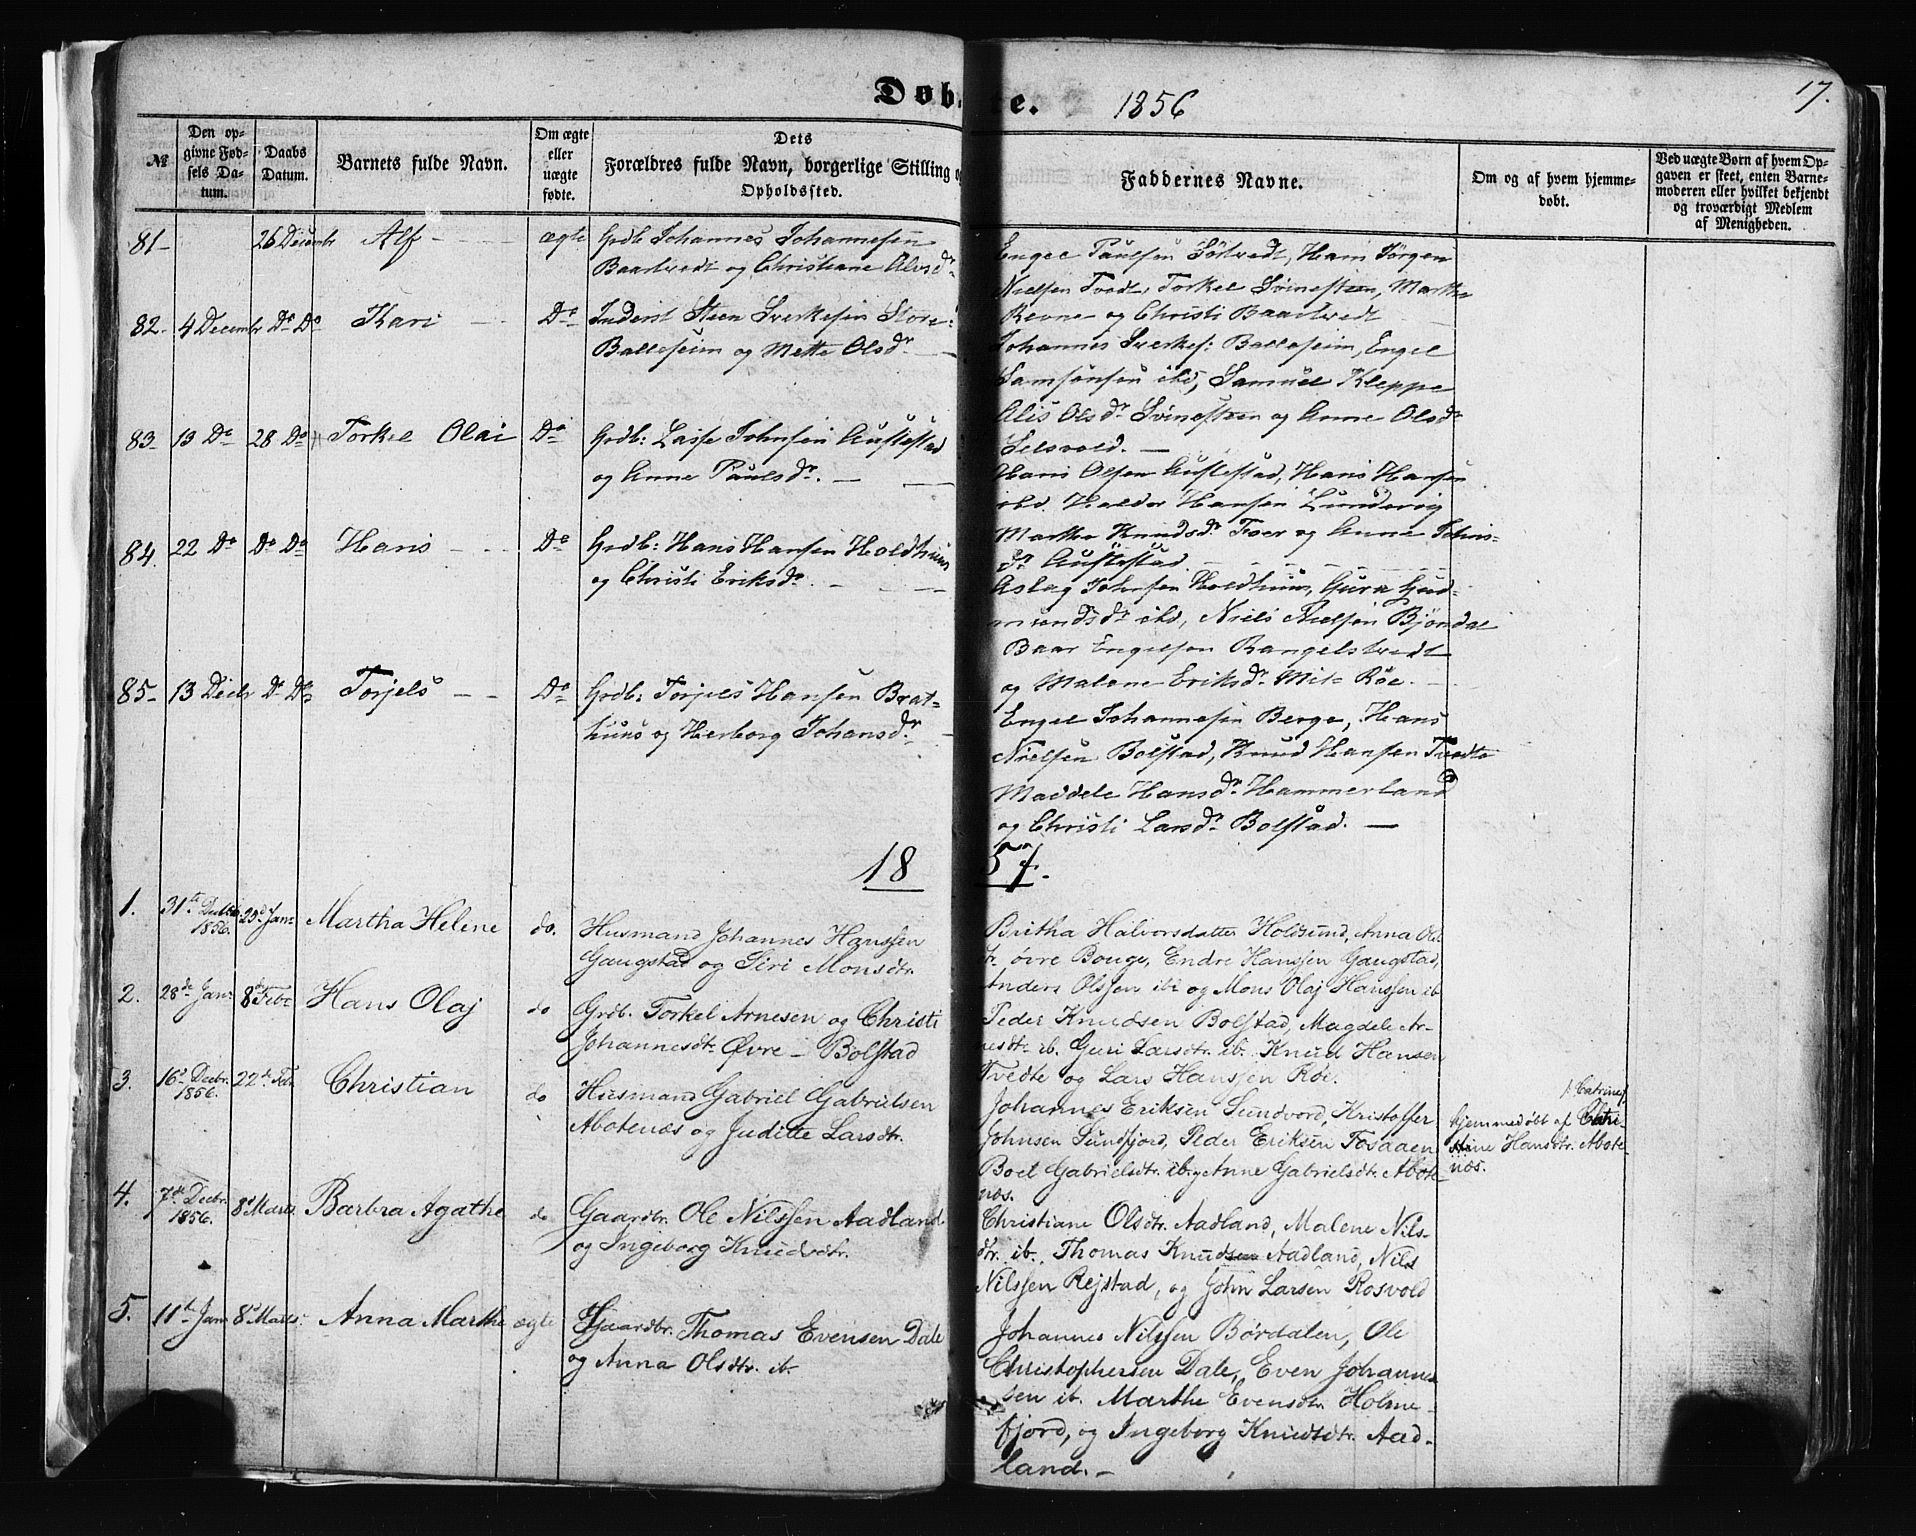 Døb e. 1856
17.
№
Den op-
givne Fød-
sels Da-
tum.
Daabs
Datum.
Barnets fulde Navn.
Om ægte
eller
uægte
fødte.
Dets
Forældres fulde Navn, borgerlige Stilling o
Opholdssted.
Faddernes Navne.
Om og af hvem hjemme-
døbt.
Ved uægte Børn af hvem Op-
gaven er skeet, enten Barne-
moderen eller hvilket bekjendt
og troværdigt Medlem
af Menigheden.
81- 26 Decembr Alf - ægte Grdb Johannes Johannesen
Baartvedt og Christiane Alvsdr
Engel Paulsen Söltvedt, Hans Jörgen
Nielsen Tvedt, Torkel Svinesteen, Martha
Revne og Christi Baartvedt
82- 4 Decembr Do Do Kari - Do Inderst Steen Sverkesen Store-
Balleseim og Mette Olsdr
Johannes Sverkes: Balleseim, Engel
Samsonsen ibd, Samuel Kleppe
Alis Olsdr Svinesteen og Anne Olsdr
Selsvold. -
83- 13 Do 28 Do Torkel Olai Do Grdb: Lasse Johnsen Austestad
og Anne Paulsdr. -
Hans Olsen Austestad, Hans Hansen
ibd. Haldor Hansen Lundervig
Martha Knudsdr Tveer og Anne Johns-
dr Austestad
84. 22 Do Do Do Hans - Do Grdb: Hans Hansen Holdhuus
og Christi Eriksdr.
Aslag Johnsen Holdhuus, Guro Gud-
mundsdr ibd, Niels Nielsen Bjöndal
Baar Engelsen Rangelstvedt
og Malene Eriksdr Mit- Röe.
85- 13 Decbr Do Do Torjels - Do Grdb: Torjels Hansen Brat-
huus og Herborg Johansdr
Engel Johannesen Berge, Hans
Nielsen Bolstad, Knud Hansen Tvedte
Maddele Hansdr Hammerland
og Christi Larsdr Bolstad. -
18 57.
1. 31te Decbr 1856. 23d Janr Martha Helene do. Husmand Johannes Hanssen
Gaugstad og Siri Monsdtr.
Britha Halvorsdatter Holdsund, Anna Ols-
tr. øvre Bouge, Endre Hanssen Gaugstad,
Anders Olssen ib. og Mons Olaj Hanssen ib.
2. 28de Janr 8de Febr Hans Olaj do Grdb. Torkel Arnesen og Christi
Johannesdtr Øvre- Bolstad
Peder Knudsen Bolstad, Magdele Ar-
nesdtr ib. Guri Larsdtr. ib. Knud Hansen
Tvedte og Lars Hanssen Røe.
3. 16d Decbr. 1856. 22de Feb. Christian do Husmand Gabriel Gabrielsen
Abotenæs og Juditte Larsdtr.
Johannes Eriksen Sundvord, Kristoffer
Johnsen Sundfjord, Peder Eriksen Fosdaaen
Boel Gabrielsdtr. ib. og Anne Gabrielsdtr. Abote-
næs.
hjemmedøbt af
Hansdtr. Abote-
næs.
4. 7de Decbr. 1856. 8d Marts. Barbra Agathe do Gaardbr. Ole Nilssen Aadland
og Ingeborg Knudsdtr.
Christiane Olsdtr. Aadland, Malene Nils-
dtr. ib. Thomas Knudsen Aadland, Nils
Nilssen Rejstad, og John Larsen Rosvold
5. 11te Janr 8d Marts. Anna Marthe ægte Gaardbr. Thomas Evensen Dale
og Anna Olsdtr. ib.
Johannes Nilssen Børdalen, Ole
Christophersen Dale, Even Johannes-
sen ib. Marthe Evensdtr. Holme-
fjord, og Ingeborg Knudsdtr. Aad-
land. -